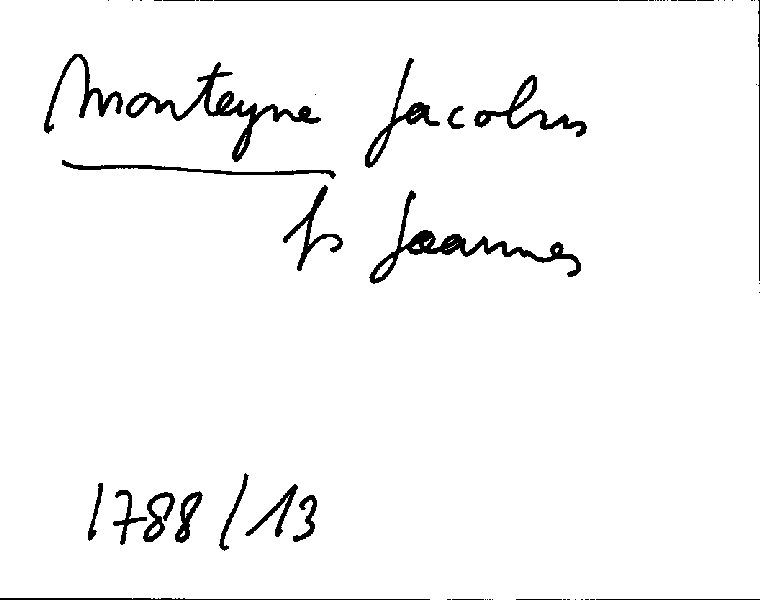 Monteyne Jacobus
fs Joannes
1788/13